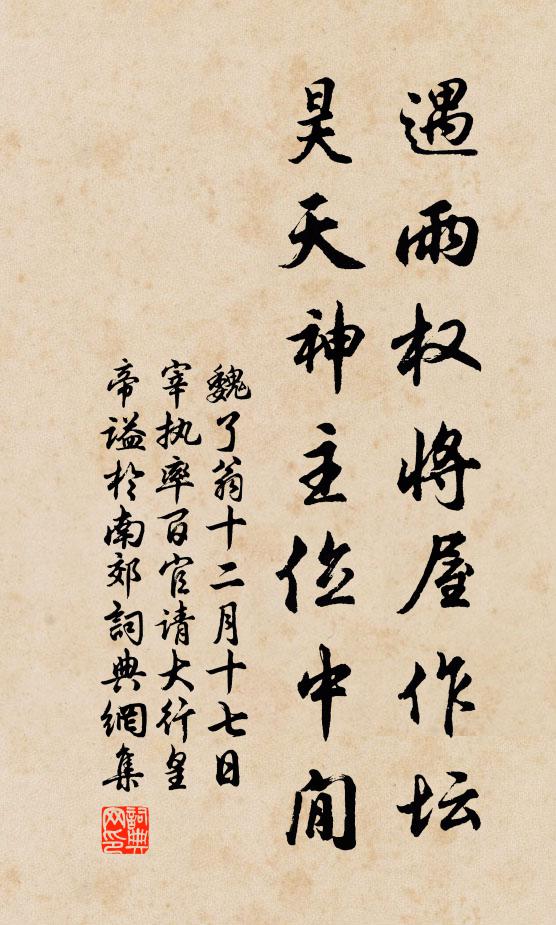 遇雨权将屋作坛
昊天神主位中间
魏了翁十二月十七日
宰执率百官请大行皇
帝谥于南郊詞典網集
詞典网印